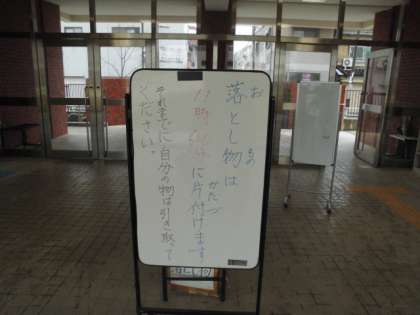 落とし物は
に片付けます
かたづ
それまでに自分の物は引き取って
ください。